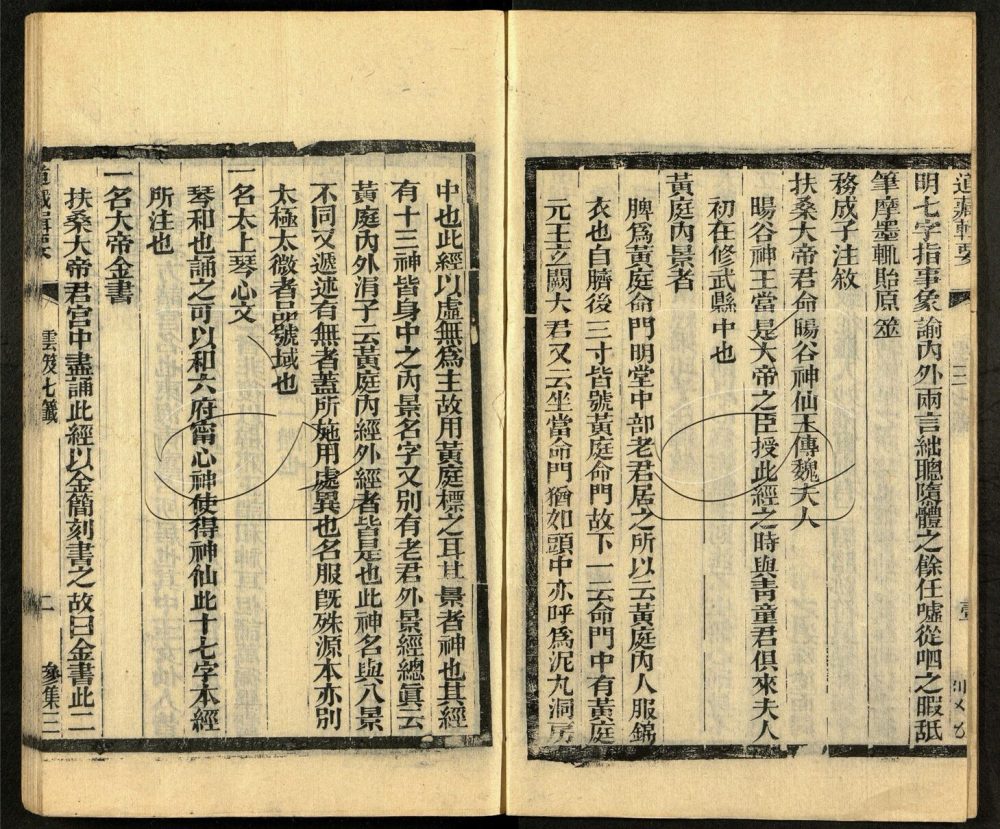 道藏輯要
明七字指事象諭內外兩言絀聰隳體之餘任噓從呬之暇舐
筆摩墨輒貽原筮
務成子注敘
扶桑大帝君命暘谷神仙王傳魏夫人
暘谷神王當是大帝之臣授此經之時與靑童君俱來夫人
初在修武縣中也
黃庭內景者
脾爲黃庭命門明堂中部老君居之所以云黃庭內人服錦
衣也自臍後三寸皆號黃庭命門故下一云命門中有黃庭
元王立闕大君又云坐當命門猶如頭中亦呼爲泥九洞房
中也此經以虛無爲主故用黃庭標之耳其景者神也其經
有十三神皆身中之內景名字又別有老君外景經總眞云
黃庭內外涓子云黃庭內經外經者皆是也此神名與八景
不同又遞述有無者蓋所施用處異也名服旣殊源本亦別
太極太微者品號域也
一名太上琴心文
琴和也誦之可以和六府甯心神使得神仙此十七字本經
所注也
一名大帝金書
扶桑大帝君宮中盡誦此經以金簡刻書之故曰金書此二
道藏輯要
雲笈七籤
二
參集三